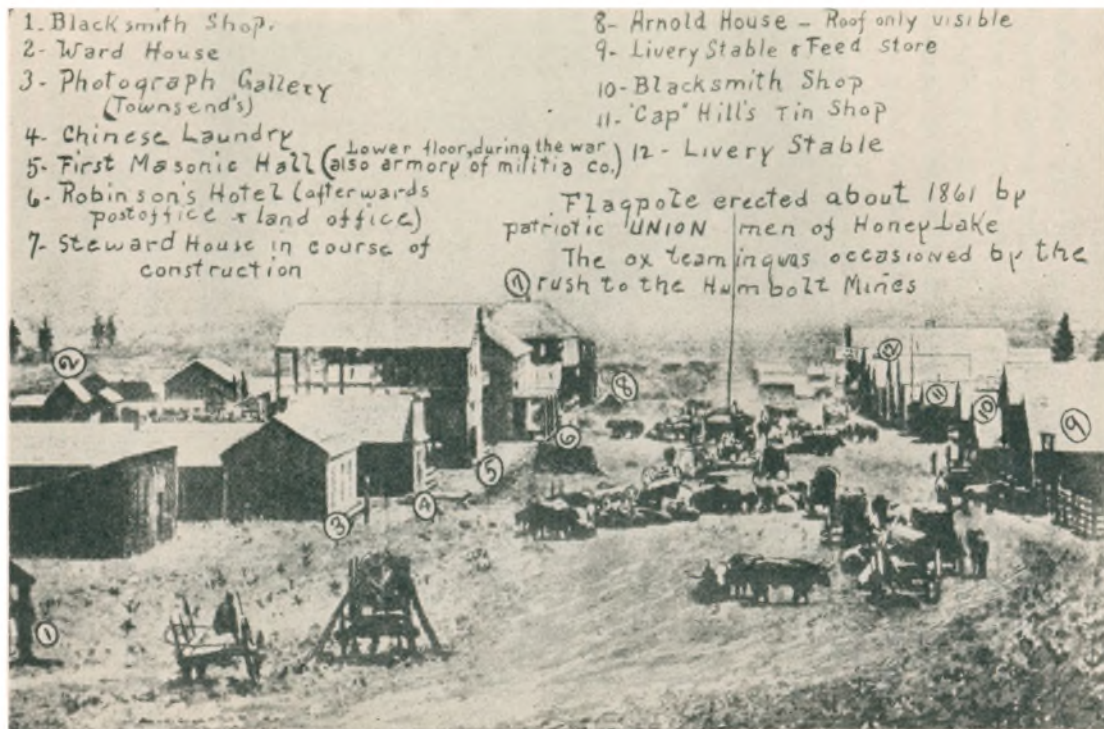 1- Blacksmith Shop.
2- Ward House
3- Photograph Gallery
(Townsend's)
4- Chinese Laundry
5- First Masonic Hall (Lower floor, during the war
also armory of militia co.)
6- Robinson's Hotel (afterwards
postoffice & land office)
7- Steward House in course of
construction
8- Arnold House - Roof only visible
9- Livery Stable & Feed Store
10- Blacksmith Shop
11- "Cap" Hill's Tin Shop
12- Livery Stable
Flagpole erected about 1861 by
patriotic UNION men of Honey Lake
The ox teaming was occasioned by the
rush to the Humbolt Mines
7
2
8
12
11
10
9
6
5
4
3
1